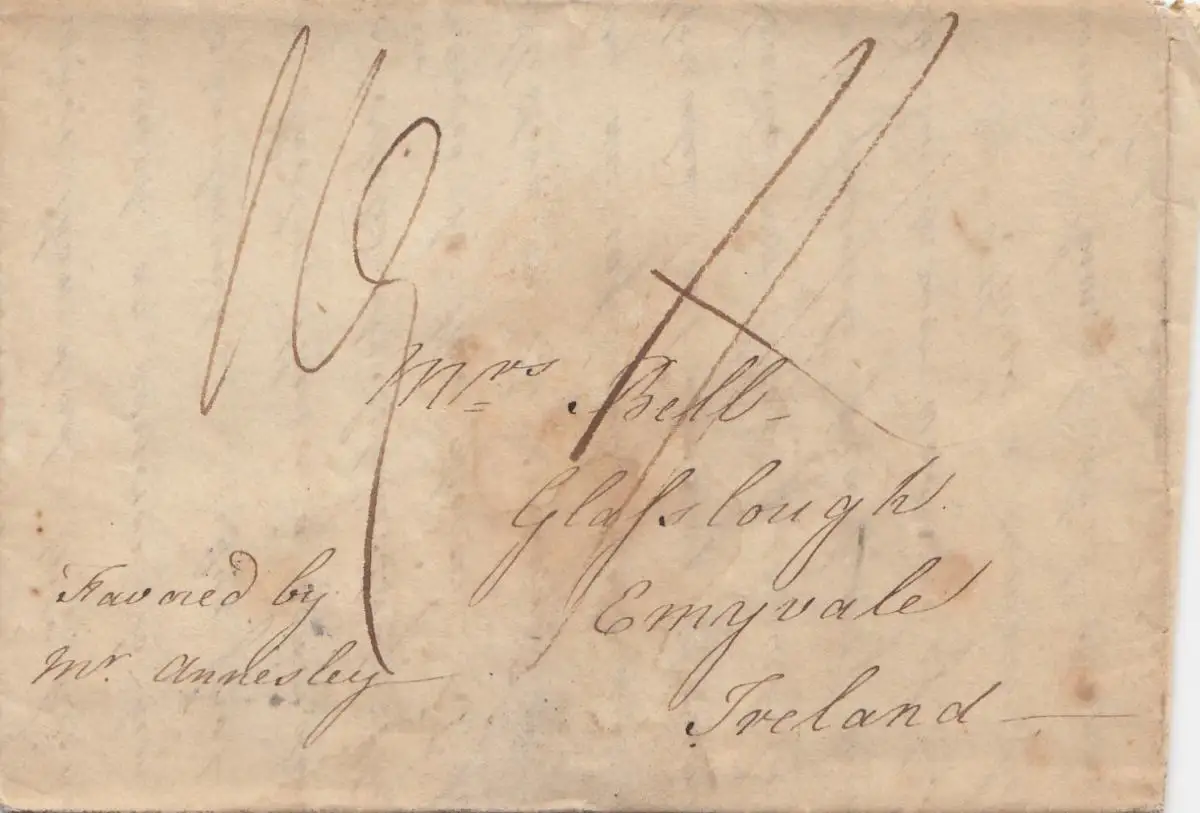 Mrs Bell
Glaſslough
Emyvale
Ireland
Favored by
Mr. Annesley